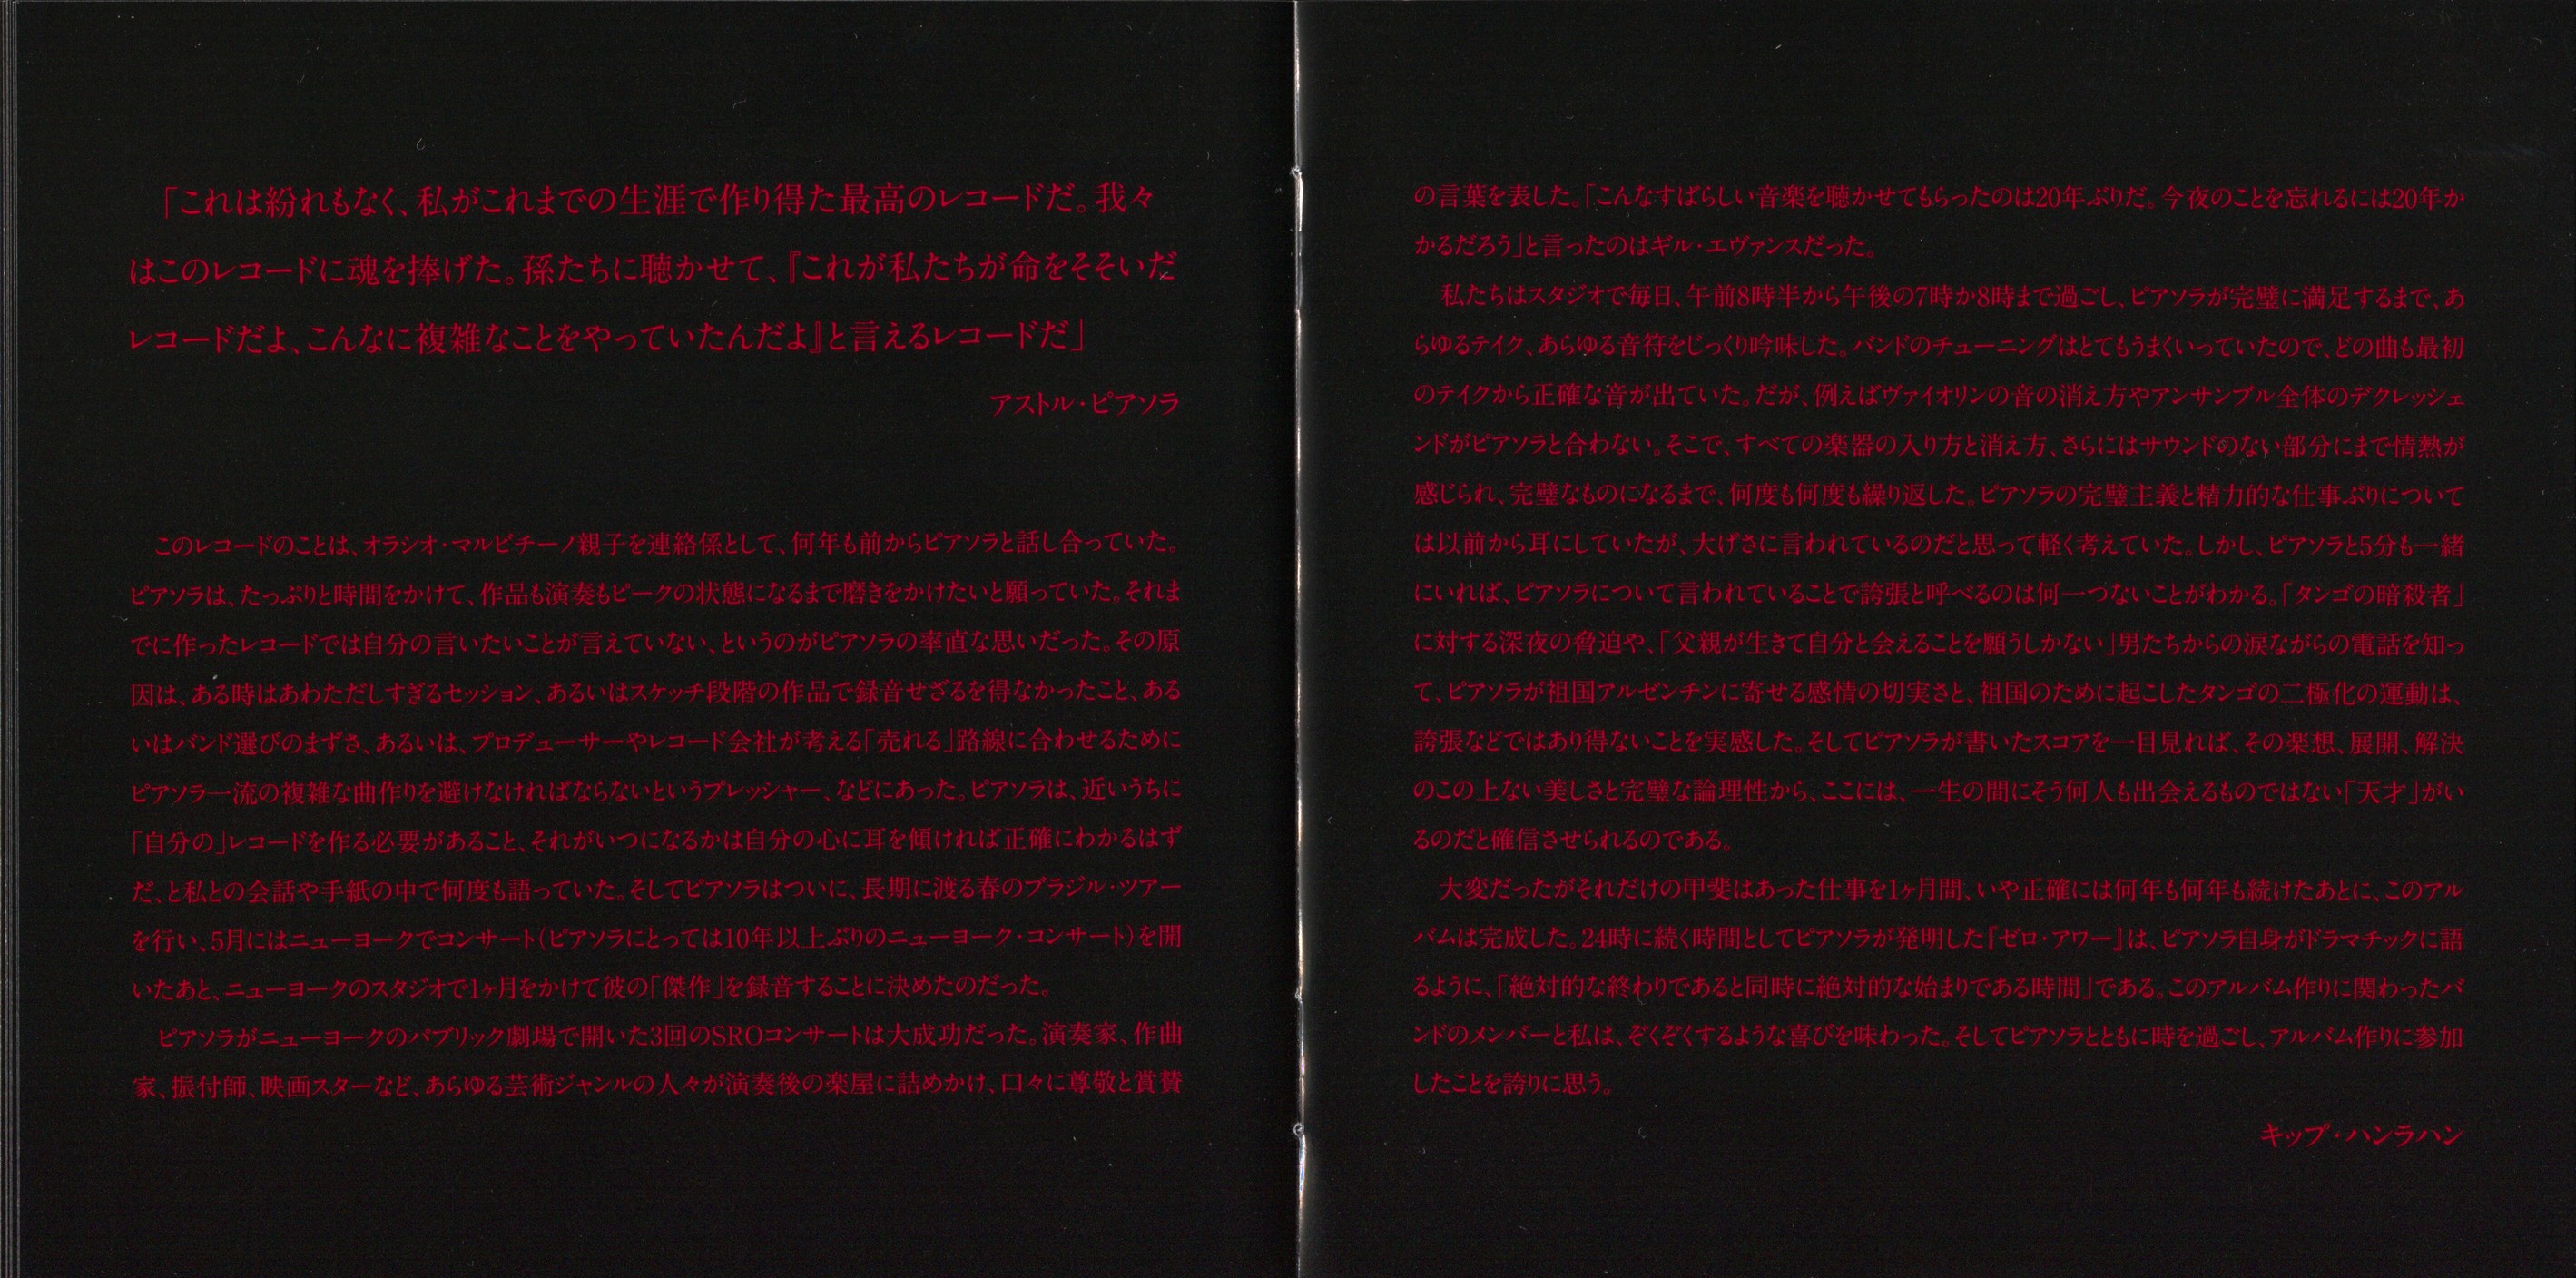 「これは紛れもなく、私がこれまでの生涯で作り得た最高のレコードだ。我々
はこのレコードに魂を捧げた。孫たちに聴かせて、『これが私たちが命をそそいだ
レコードだよ、こんなに複雑なことをやっていたんだよ』と言えるレコードだ」
アストル・ピアソラ
このレコードのことは、オラシオ・マルビチーノ親子を連絡係として、何年も前からピアソラと話し合っていた。
ピアソラは、たっぷりと時間をかけて、作品も演奏もピークの状態になるまで磨きをかけたいと願っていた。それま
でに作ったレコードでは自分の言いたいことが言えていない、というのがピアソラの率直な思いだった。その原
因は、ある時はあわただしすぎるセッション、あるいはスケッチ段階の作品で録音せざるを得なかったこと、ある
いはバンド選びのまずさ、あるいは、プロデューサーやレコード会社が考える「売れる」路線に合わせるために
ピアソラ一流の複雑な曲作りを避けなければならないというプレッシャー、などにあった。ピアソラは、近いうちに
「自分の」レコードを作る必要があること、それがいつになるかは自分の心に耳を傾ければ正確にわかるはず
だ、と私との会話や手紙の中で何度も語っていた。そしてピアソラはついに、長期に渡る春のブラジル・ツアー
を行い、5月にはニューヨークでコンサート(ピアソラにとっては10年以上ぶりのニューヨーク・コンサート)を開
いたあと、ニューヨークのスタジオで1ヶ月をかけて彼の「傑作」を録音することに決めたのだった。
ピアソラがニューヨークのパブリック劇場で開いた3回のSROコンサートは大成功だった。演奏家、作曲
家、振付師、映画スターなど、あらゆる芸術ジャンルの人々が演奏後の楽屋に詰めかけ、口々に尊敬と賞賛
の言葉を表した。「こんなすばらしい音楽を聴かせてもらったのは20年ぶりだ。今夜のことを忘れるには20年か
かるだろう」と言ったのはギル・エヴァンスだった。
私たちはスタジオで毎日、午前8時半から午後の7時か8時まで過ごし、ピアソラが完璧に満足するまで、あ
らゆるテイク、あらゆる音符をじっくり吟味した。バンドのチューニングはとてもうまくいっていたので、どの曲も最初
のテイクから正確な音が出ていた。だが、例えばヴァイオリンの音の消え方やアンサンブル全体のデクレッシェ
ンドがピアソラと合わない。そこで、すべての楽器の入り方と消え方、さらにはサウンドのない部分にまで情熱が
感じられ、完璧なものになるまで、何度も何度も繰り返した。ピアソラの完璧主義と精力的な仕事ぶりについて
は以前から耳にしていたが、大げさに言われているのだと思って軽く考えていた。しかし、ピアソラと5分も一緒
にいれば、ピアソラについて言われていることで誇張と呼べるのは何一つないことがわかる。「タンゴの暗殺者」
に対する深夜の脅迫や、「父親が生きて自分と会えることを願うしかない」男たちからの涙ながらの電話を知っ
て、ピアソラが祖国アルゼンチンに寄せる感情の切実さと、祖国のために起こしたタンゴの二極化の運動は、
誇張などではあり得ないことを実感した。そしてピアソラが書いたスコアを一目見れば、その楽想、展開、解決
のこの上ない美しさと完璧な論理性から、ここには、一生の間にそう何人も出会えるものではない「天才」がい
るのだと確信させられるのである。
大変だったがそれだけの甲斐はあった仕事を1ヶ月間、いや正確には何年も何年も続けたあとに、このアル
バムは完成した。24時に続く時間としてピアソラが発明した『ゼロ・アワー』は、ピアソラ自身がドラマチックに語
るように、「絶対的な終わりであると同時に絶対的な始まりである時間」である。このアルバム作りに関わったバ
ンドのメンバーと私は、ぞくぞくするような喜びを味わった。そしてピアソラとともに時を過ごし、アルバム作りに参加
したことを誇りに思う。
キップ・ハンラハン